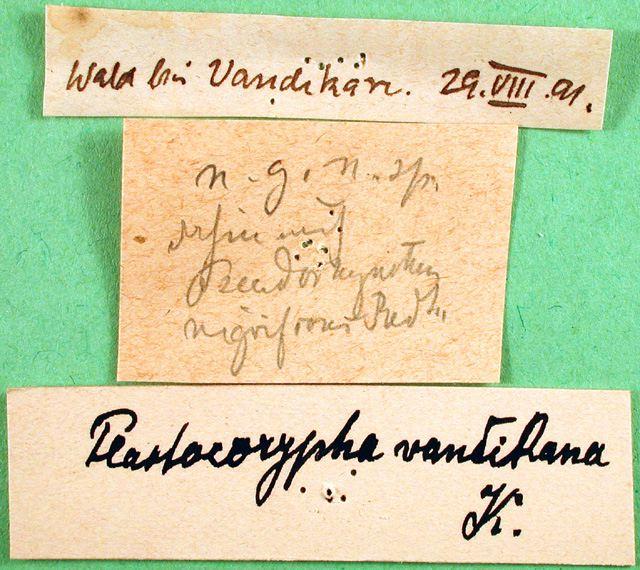 Wald bei Vandikäre. 29.VIII.91.
n. g. n. sp.
mit
Pseudorhynchus
nigrifrons Redt.
Plastocorypha vandikana
K.